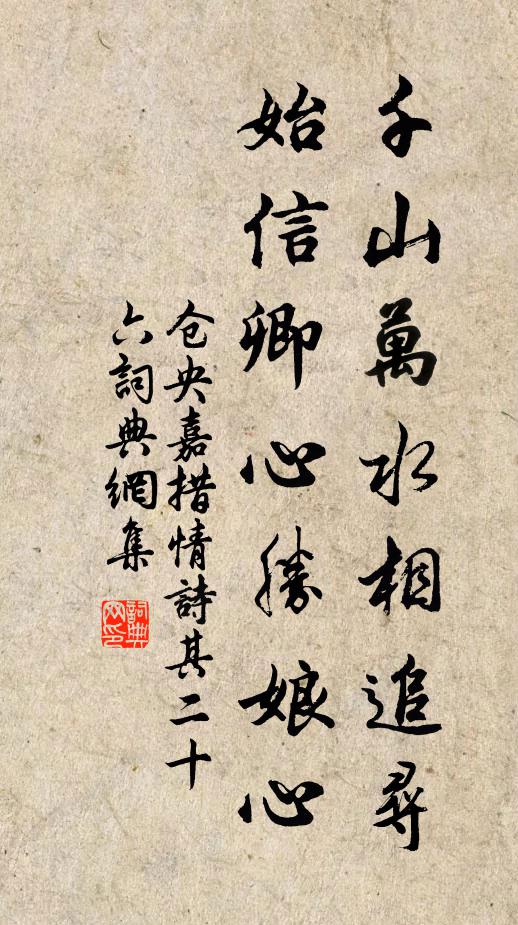 千山萬水相追尋
始信卿心勝娘心
仓央嘉措情詩其二十
六詞典網集
詞典网印